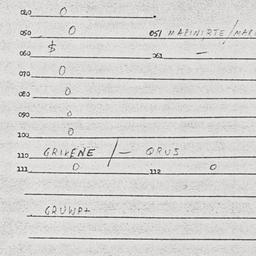 040 0
050 0 051 MARINIRTE / MAR
060 $ 061 —
070 0
080 0
090 0
100 0
110 GRIVENE / — QRUS
111 0 112 0
GRUWPL